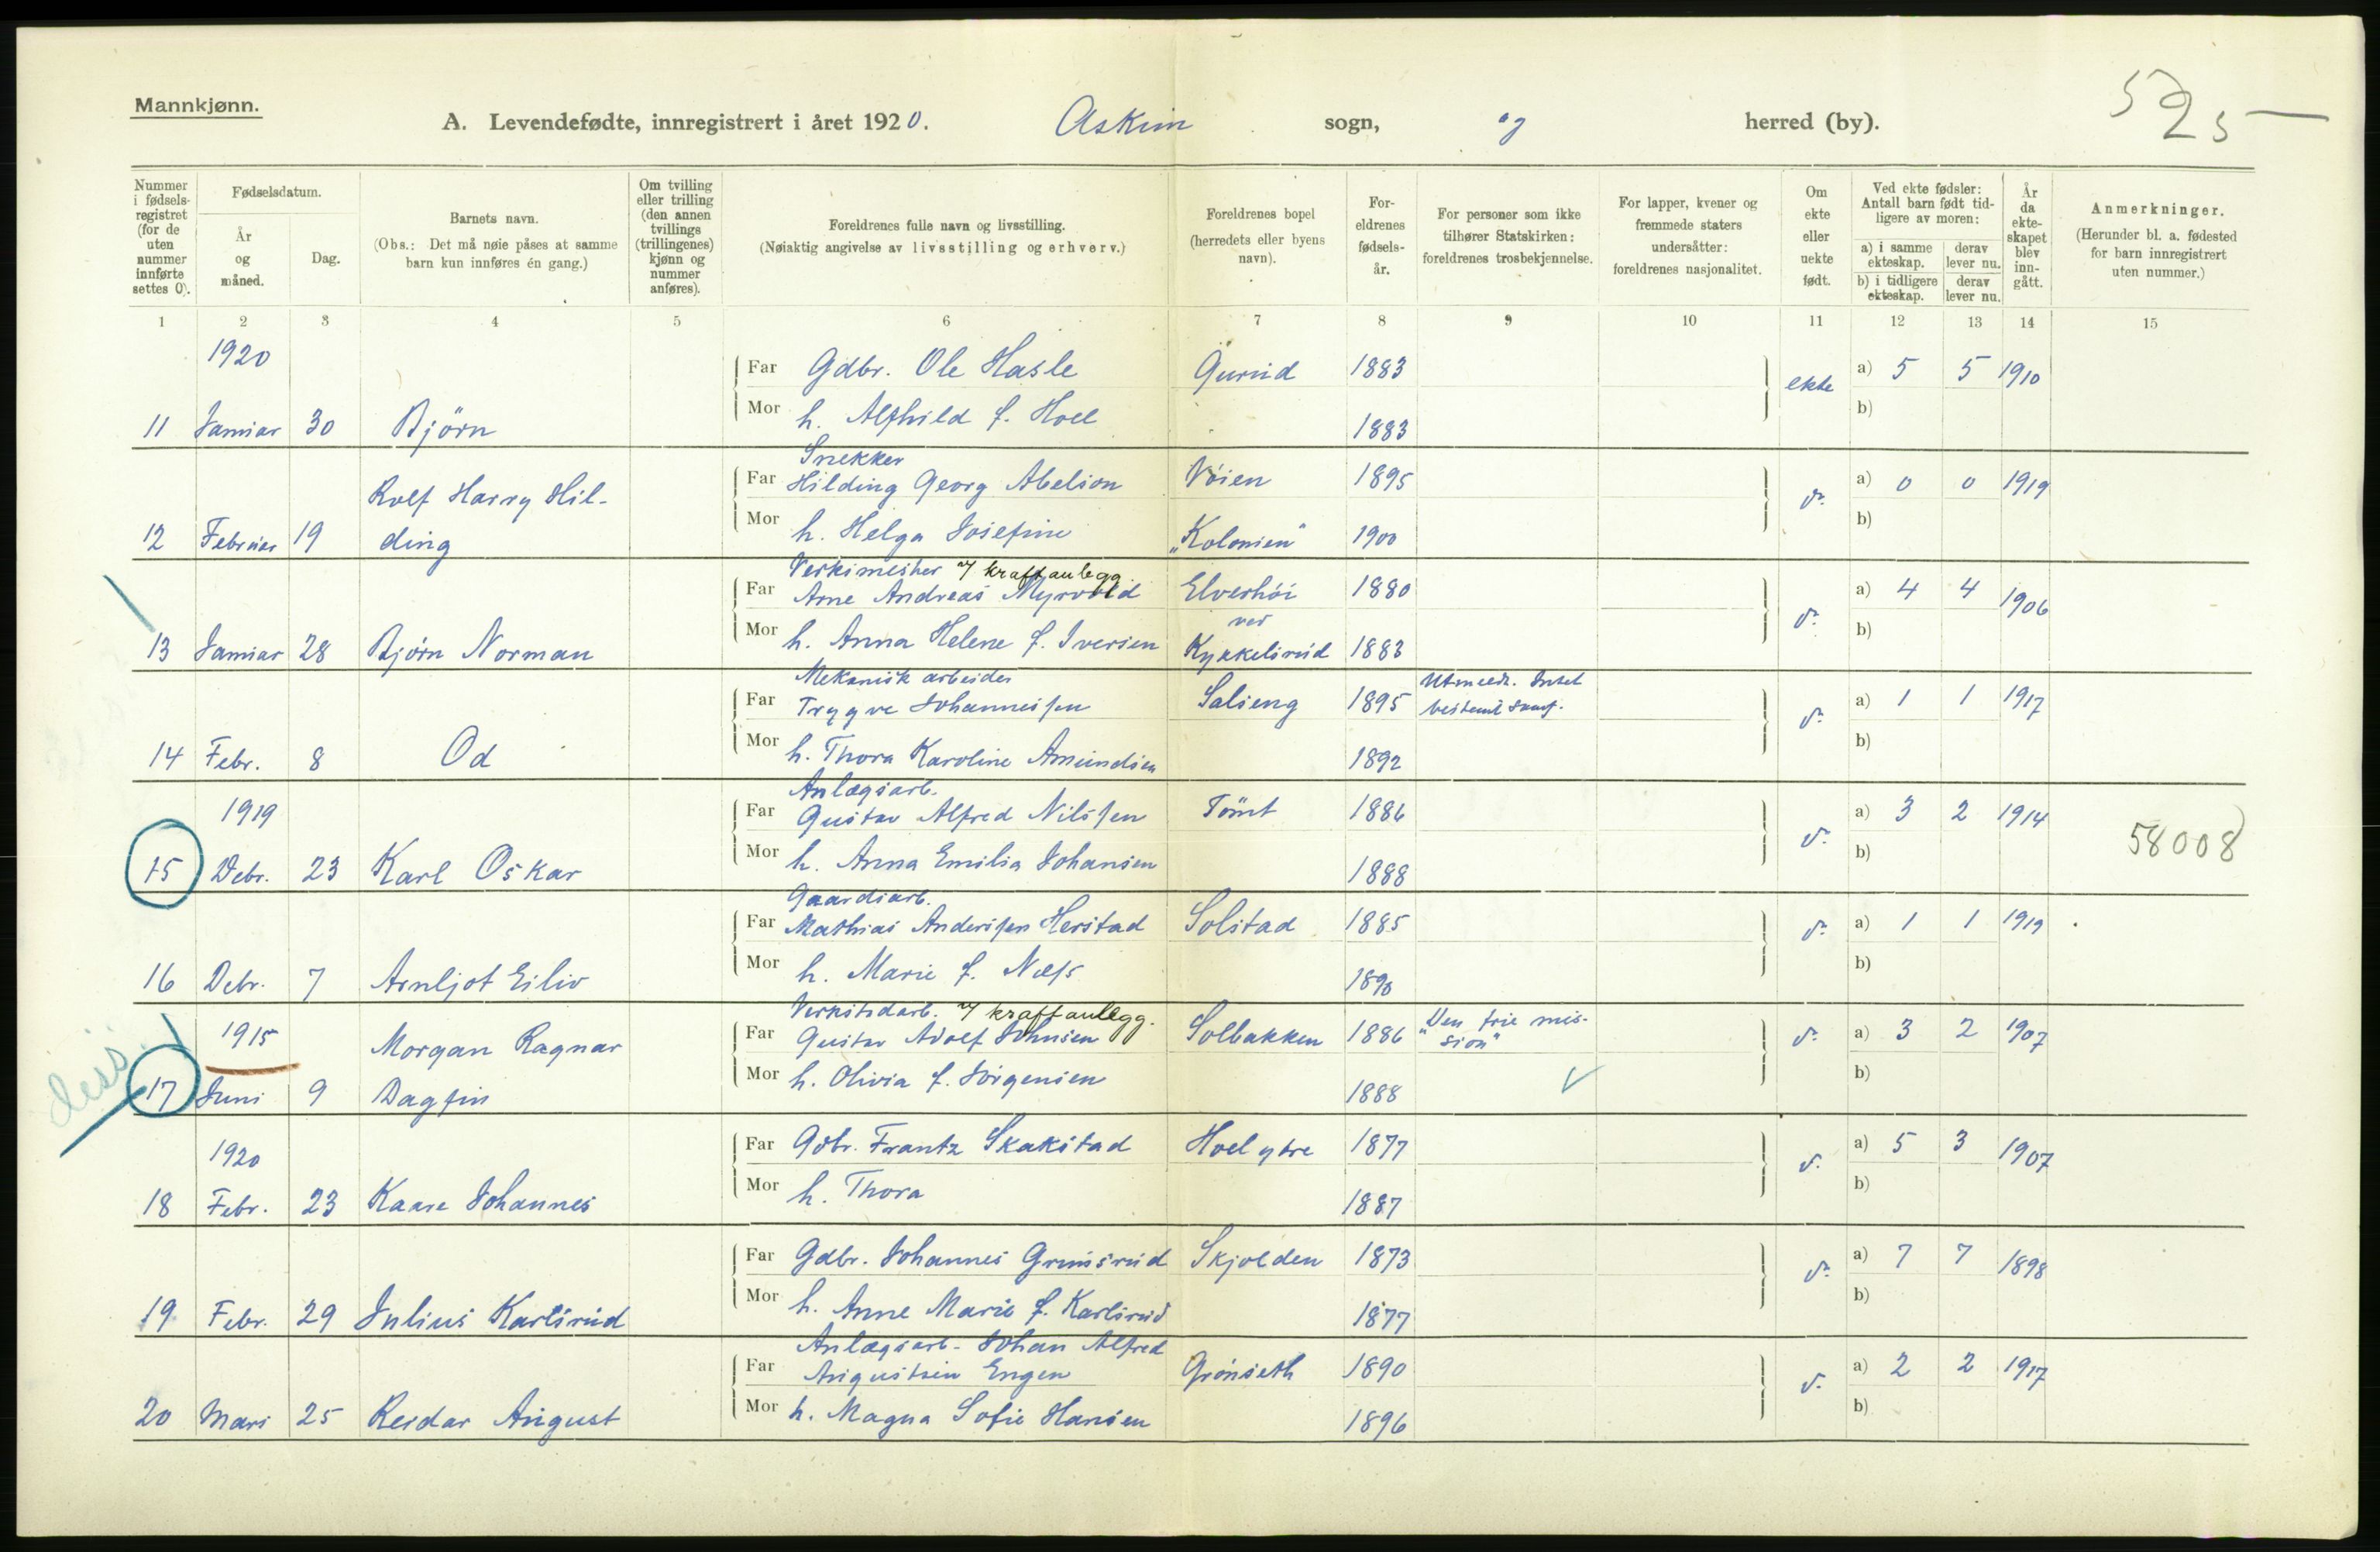 Mannkjønn.
A. Levendefødte, innregistrert i året 1920. Askim sogn, og herred (by).
525
Nummer i fødsels-registret (for de uten nummer innførte settes 0).
Fødselsdatum.
År og måned.
Dag.
Barnets navn.
(Obs.: Det må nøie påses at samme barn kun innføres én gang.)
Om tvilling eller trilling (den annen tvillings (trillingenes) kjønn og nummer anføres).
Foreldrenes fulle navn og livsstilling.
(Nøiaktig angivelse av livsstilling og erhverv.)
Foreldrenes bopel (herredets eller byens navn).
For-eldrenes fødsels-år.
For personer som ikke tilhører Statskirken: foreldrenes trosbekjennelse.
For lapper, kvener og fremmede staters undersåtter: foreldrenes nasjonalitet.
Om ekte eller uekte født.
Ved ekte fødsler: Antall barn født tid-ligere av moren:
a) i samme ekteskap. derav lever nu.
b) i tidligere ekteskap. derav lever nu.
År da ekte-skapet blev inn-gått.
Anmerkninger.
(Herunder bl. a. fødested for barn innregistrert uten nummer.)
1 2 3 4 5 6 7 8 9 10 11 12 13 14 15
1920
Far Gdbr. Ole Hasle Gurud 1883 ekte a) 5 5 1910
11 Januar 30 Bjørn Mor h. Alfhild f. Hoel 1883 b)
Snekker
Rolf Harry Hil- Far Hilding Georg Abelson Vøien 1895 do a) 0 0 1919
12 Februar 19 ding Mor h. Helga Josefine "Kolonien" 1900 b)
Verksmester v/ kraftanlegg.
Far Arne Andreas Myrvold Elverhöi 1880 do a) 4 4 1906
ved
13 Januar 28 Bjørn Norman Mor h. Anna Helene f. Iversen Kykkelsrud 1883 b)
Mekanisk arbeider
Far Trygve Johannessen Salieng 1895 Utmeldt. Intet bestemt samf. do a) 1 1 1917
14 Febr. 8 Od Mor h. Thora Karoline Amundsen 1892 b)
Anlægsarb.
1919 Far Gustav Alfred Nilssen Tömt 1886 do a) 3 2 1914
15 Debr. 23 Karl Oskar Mor h. Anna Emilia Johansen 1888 b) 58008
Gaardsarb.
Far Mathias Anderssen Herstad Solstad 1885 do a) 1 1 1919
16 Debr. 7 Arnljot Eiliv Mor h. Marie f. Næss 1890 b)
Verkstedarb. v/ kraftanlegg.
1915 Morgan Ragnar Far Gustav Adolf Johnsen Solbakken 1886 "Den frie mis-sion" do a) 3 2 1907
17 Juni 9 Dagfin Mor h. Olivia f. Jörgensen 1888 b)
1920 Far Gdbr. Frantz Skakstad Hoel ytre 1877 do a) 5 3 1907
18 Febr. 23 Kaare Johannes Mor h. Thora 1887 b)
Far Gdbr. Johannes Grimsrud Skjolden 1873 do a) 7 7 1898
19 Febr. 29 Julius Karlsrud Mor h. Anne Marie f. Karlsrud 1877 b)
Anlægsarb. Johan Alfred
Far Augustsen Engen Grönseth 1890 do a) 2 2 1917
20 Mars 25 Reidar August Mor h. Magna Sofie Hansen 1896 b)